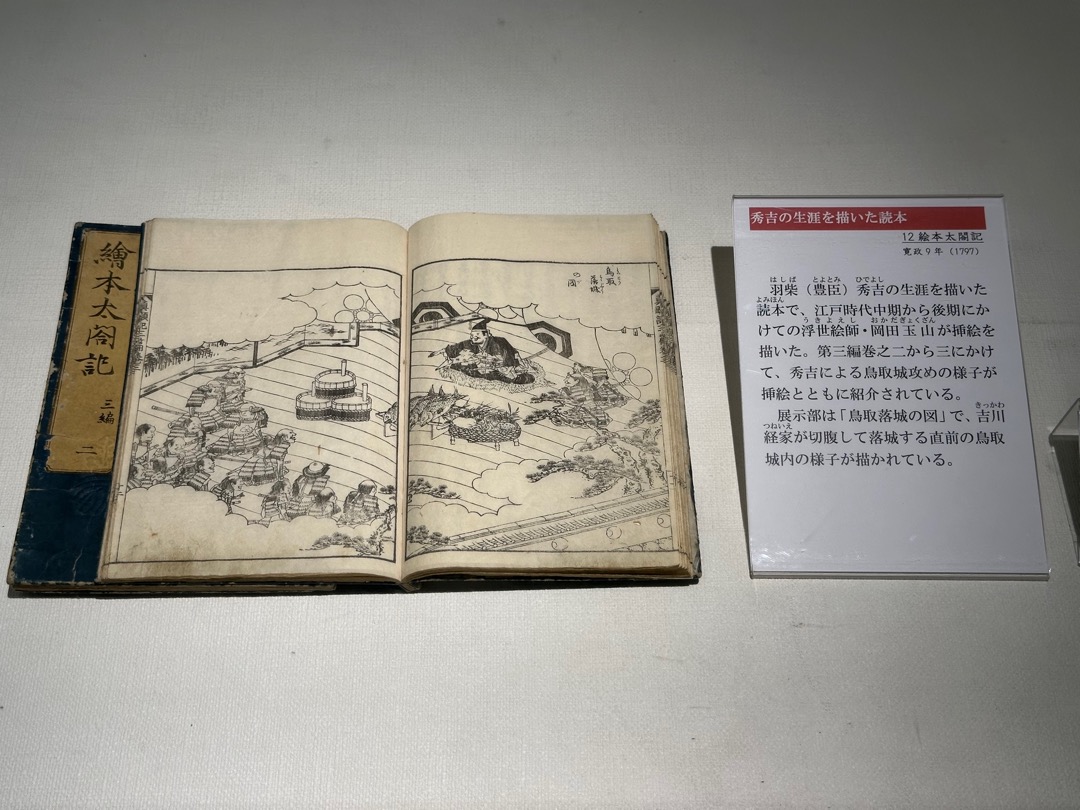 繪本太閤記
三編
二
鳥取
落城
の圖
秀吉の生涯を描いた読本
12 絵本太閤記
寛政9年（1797）
はしば とよとみ ひでよし
羽柴（豊臣）秀吉の生涯を描いた
よみほん
読本で、江戸時代中期から後期にか
うきよえし おかだぎょくざん
けての浮世絵師・岡田玉山が挿絵を
描いた。第三編巻之二から三にかけ
て、秀吉による鳥取城攻めの様子が
挿絵とともに紹介されている。
きっかわ
展示部は「鳥取落城の図」で、吉川
つねいえ
経家が切腹して落城する直前の鳥取
城内の様子が描かれている。